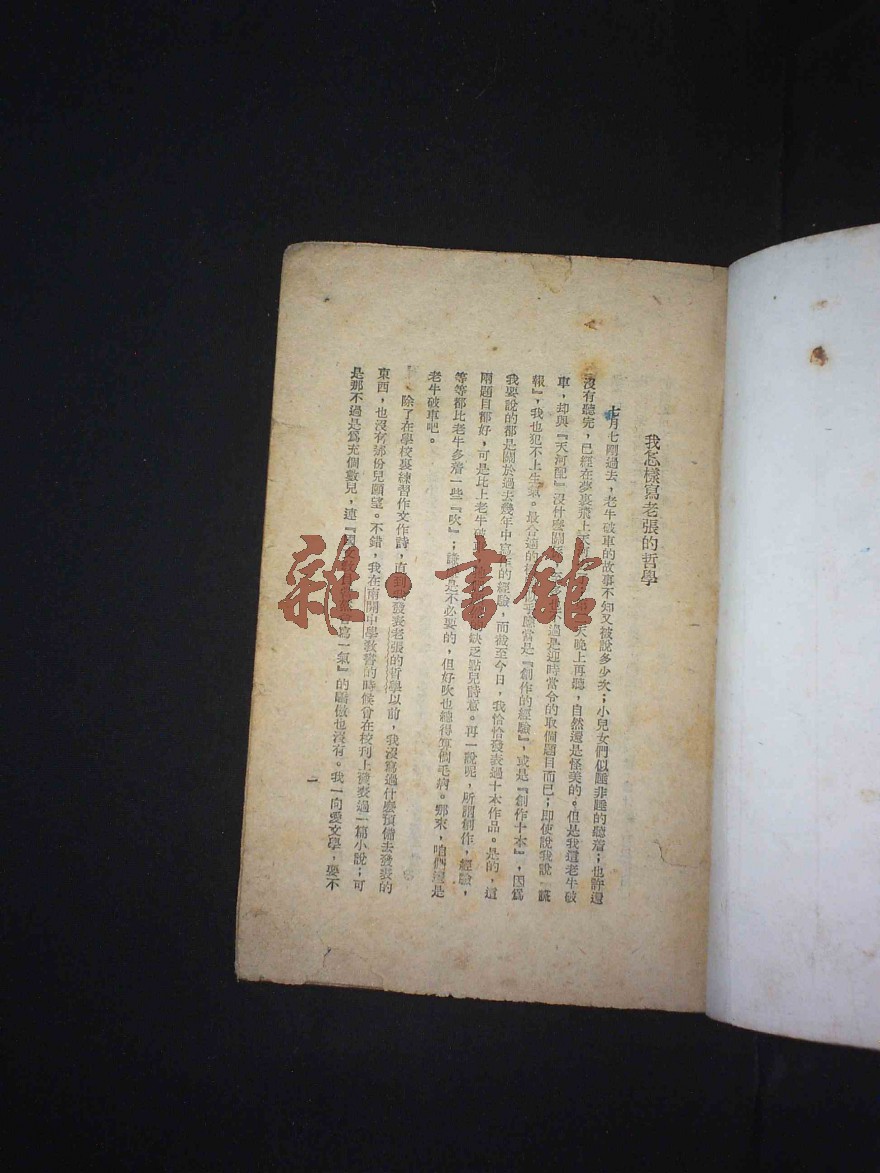 我怎樣寫老張的哲學
七月七剛過去，老牛破車的故事不知又被說多少次；小兒女們似睡非睡的聽着；也許還
沒有聽完，已經在夢裏飛上天
天晚上再聽，自然還是怪美的。但是我這老牛破
車，却與『天河配』沒什麽關
不過是迎時當令的取個題目而已；即使說我說『謊
報』，我也犯不上生氣。最合適的
應當是『創作的經驗』，或是『創作十本』，因爲
我要說的都是關於過去幾年中寫作的經驗，而截至今日，我恰恰發表過十本作品。是的，這
兩題目都好，可是比上老牛破
缺乏點兒詩意。再一說呢，所謂創作，經驗，
等等都比老牛多着一些『吹』；謙
是不必要的，但好吹也總得算個毛病。那末，咱們還是
老牛破車吧。
除了在學校裏練習作文作詩，直到我發表老張的哲學以前，我沒寫過什麽預備去發表的
東西，也沒有那份兒願望。不錯，我在南開中學教書的時候曾在校刊上發表過一篇小說；可
是那不過是爲充個數兒，連『
寫一氣』的驕傲也沒有。我一向愛文學，要不
一
雜·書館